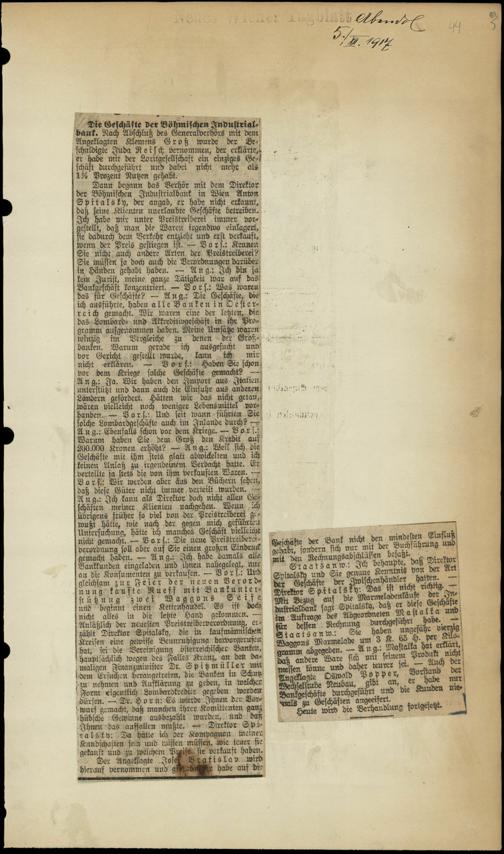 Neues Wiener Tagblatt
Abendbl
5./XI. 1917
44
Die Geschäfte der Böhmischen Industrial-
bank. Nach Abschluß des Generalverhörs mit dem
Angeklagten Klemens Groß wurde der Be-
schuldigte Juda Reisch vernommen, der erklärte,
er habe mit der Loritgesellschaft ein einziges Ge-
schäft durchgeführt und dabei nicht mehr als
1½ Prozent Nutzen gehabt.
Dann begann das Verhör mit dem Direktor
der Böhmischen Industrialbank in Wien Anton
Spitalsky, der angab, er habe nicht erkannt,
daß seine Klienten unerlaubte Geschäfte betreiben.
Ich habe mir unter Preistreiberei immer vor-
gestellt, daß man die Waren irgendwo einlagert,
sie dadurch dem Verkehr entzieht und erst verkauft,
wenn der Preis gestiegen ist. — Vors.: Kennen
Sie nicht auch andere Arten der Preistreiberei?
Sie müssen ja doch auch die Verordnungen darüber
in Händen gehabt haben. — Ang.: Ich bin ja
kein Jurist, meine ganze Tätigkeit war auf das
Bankgeschäft konzentriert. — Vors.: Was waren
das für Geschäfte? — Ang.: Die Geschäfte, die
ich ausführte, haben alle Banken in Oester-
reich gemacht. Wir waren eine der letzten, die
das Lombard- und Akkreditivgeschäft in ihr Pro-
gramm aufgenommen haben. Meine Umsätze waren
winzig im Vergleiche zu denen der Groß-
banken. Warum gerade ich ausgesucht und
vor Gericht gestellt wurde, kann ich mir
nicht erklären. — Vors.: Haben Sie schon
vor dem Kriege solche Geschäfte gemacht? —
Ang.: Ja. Wir haben den Import aus Italien
unterstützt und dann auch die Einfuhr aus anderen
Ländern gefördert. Hätten wir das nicht getan,
wären vielleicht noch weniger Lebensmittel vor-
handen. — Vors.: Und seit wann führten Sie
solche Lombardgeschäfte auch im Inlande durch? —
Ang.: Ebenfalls schon vor dem Kriege. — Vors.:
Warum haben Sie dem Groß den Kredit auf
200.000 Kronen erhöht? — Ang.: Weil sich die
Geschäfte mit ihm stets glatt abwickelten und ich
keinen Anlaß zu irgendeinem Verdacht hatte. Er
verteilte ja stets die von ihm verkauften Waren. —
Vors.: Wir werden aber aus den Büchern sehen,
daß diese Güter nicht immer verteilt wurden. —
Ang.: Ich kann als Direktor doch nicht allen Ge-
schäften meiner Klienten nachgehen. Wenn ich
übrigens früher so viel von der Preistreiberei ge-
wußt hätte, wie nach der gegen mich geführten
Untersuchung, hätte ich manches Geschäft vielleicht
nicht gemacht. — Vors.: Die neue Preistreiberei-
verordnung soll aber auf Sie einen großen Eindruck
gemacht haben. — Ang.: Ich habe damals alle
Bankkunden eingeladen und ihnen nahegelegt, nur
an die Konsumenten zu verkaufen. — Vors.: Und
gleichsam zur Feier der neuen Verord-
nung kaufte Rueff mit Bankunter-
stützung zwei Waggons Seife
und beginnt einen Kettenhandel. Es ist doch
nicht alles in die feste Hand gekommen. —
Anläßlich der neuesten Preistreibereiverordnung, er-
zählt Direktor Spitalsky, die in kaufmännischen
Kreisen eine gewisse Beunruhigung hervorgerufen
hat, sei die Vereinigung österreichischer Banken,
hauptsächlich wegen des Falles Kranz, an den da-
maligen Finanzminister Dr. Spitzmüller mit
dem Ersuchen herangetreten, die Banken in Schutz
zu nehmen und Aufklärung zu geben, in welcher
Form eigentlich Lombardkredite gegeben werden
dürfen. — Dr. Horn: Es wurde Ihnen der Vor-
wurf gemacht, daß manchen Ihrer Komittenten ganz
hübsche Gewinne ausbezahlt wurden, und daß
Ihnen das auffallen mußte. — Direktor Spi-
talsky: Da hätte ich der Kompagnon meiner
Kundschaften sein und wissen müssen, wie teuer sie
gekauft und zu welchem Preise sie verkauft haben.
Der Angeklagte Josef Bratislav wird
hierauf vernommen und gibt an, er habe auf die
Geschäfte der Bank nicht den mindesten Einfluß
gehabt, sondern sich nur mit der Buchführung und
mit den Rechnungsabschlüssen befaßt.
Staatsanw.: Ich behaupte, daß Direktor
Spitalsky und Sie genaue Kenntnis von der Art
der Geschäfte der Zwischenhändler hatten. —
Direktor Spitalsky: Das ist nicht richtig. —
Mit Bezug auf die Marmeladenkäufe der In-
dustrialbank sagt Spitalsky, daß er diese Geschäfte
im Auftrage des Abgeordneten Mastalka und
für dessen Rechnung durchgeführt habe. —
Staatsanw.: Sie haben ungefähr vierzig
Waggons Marmelade um 3 K. 65 H. per Kilo-
gramm abgegeben. — Ang.: Mastalka hat erklärt,
daß andere Ware sich mit seinem Produkt nicht
messen könne und daher teurer sei. — Auch der
Angeklagte Oswald Popper, Vorstand der
Wechselstube Neubau, gibt an, er habe nur
Bankgeschäfte durchgeführt und die Kunden nie-
mals zu Geschäften angeeifert.
Heute wird die Verhandlung fortgesetzt.